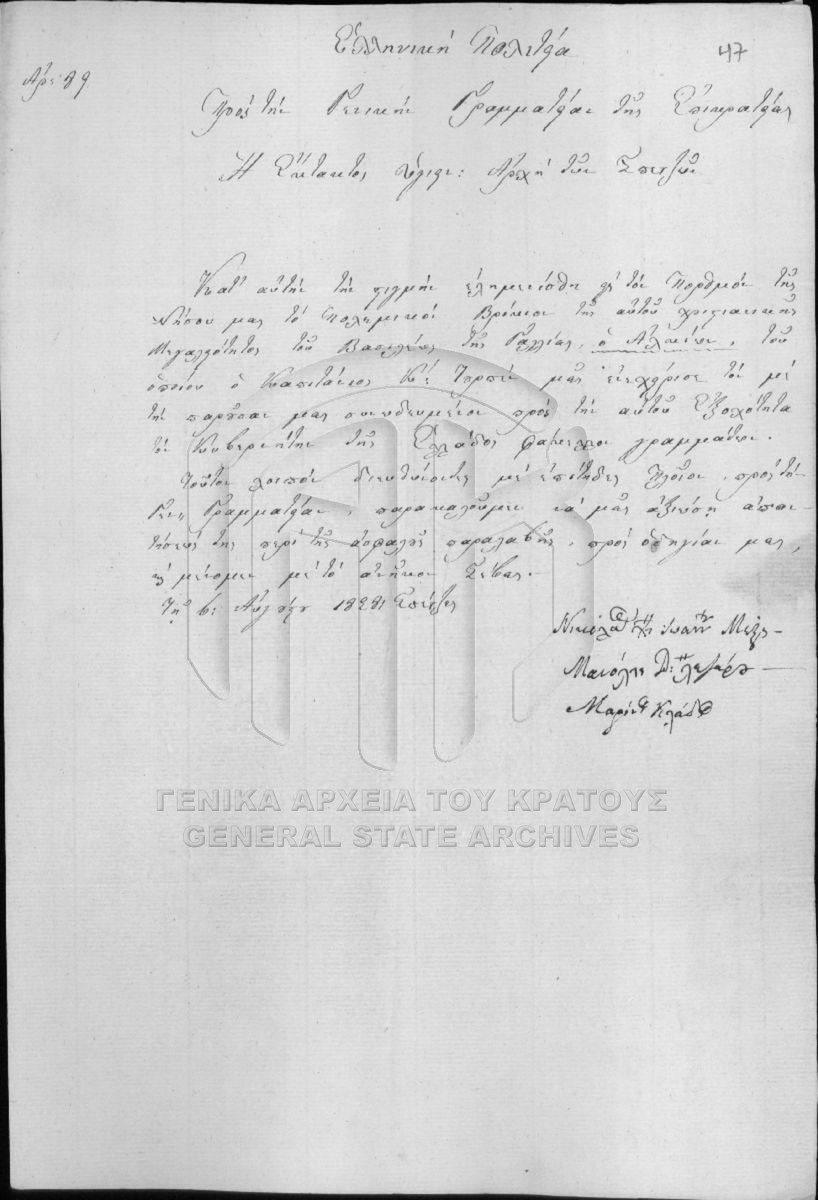 Ἑλληνικὴ Πολιτεία
47
Ἀρι: 89
Πρὸς τὴν Γενικὴν Γραμματείαν τῆς Ἐπικρατείας
Ἡ Ἔκτακτος Ἀρχὴ τῶν Σπετζῶν
Κατ' αὐτὴν τὴν στιγμὴν ἐλημενίσθη εἰς τὸν Πορθμὸν τῆς
Νήσου μας τὸ Πολεμικὸν Βρίκιον τῆς αὐτοῦ χριστιανικῆς
Μεγαλειότητος τοῦ Βασιλέως τῆς Γαλλίας, ὁ Ἀλκιόν, τοῦ
ὁποίου ὁ Καπιτάνιος Κύ: μᾶς ἐνεχείρισε τὸν μὲ
τὴν παροῦσαν μας συνοδευμένον πρὸς τὴν αὐτοῦ Ἐξοχότητα
τὸν Κυβερνήτην τῆς Ἑλλάδος φάκελλον γραμμάτων.
Τοῦτον λοιπὸν διευθύνοντες μὲ ἐπίτηδες πλοῖον, πρὸς τὴν
Γεν: Γραμματείαν, παρακαλοῦμεν νὰ μᾶς ἀξιώσῃ ἀπαν-
τήσεώς της περὶ τῆς ἀσφαλοῦς παραλαβῆς, πρὸς ὁδηγίαν μας,
καὶ μένομεν μὲ τὸ ἀνῆκον Σέβας.
Τῇ 6: Αὐγούστου 1828: Σπέτζες
Νικόλαος χ: Ἰωάννου Μέξη
Μανόλης Λαζάρου
Μαρίνος Κλάδος
ΓΕΝΙΚΑ ΑΡΧΕΙΑ ΤΟΥ ΚΡΑΤΟΥΣ
GENERAL STATE ARCHIVES